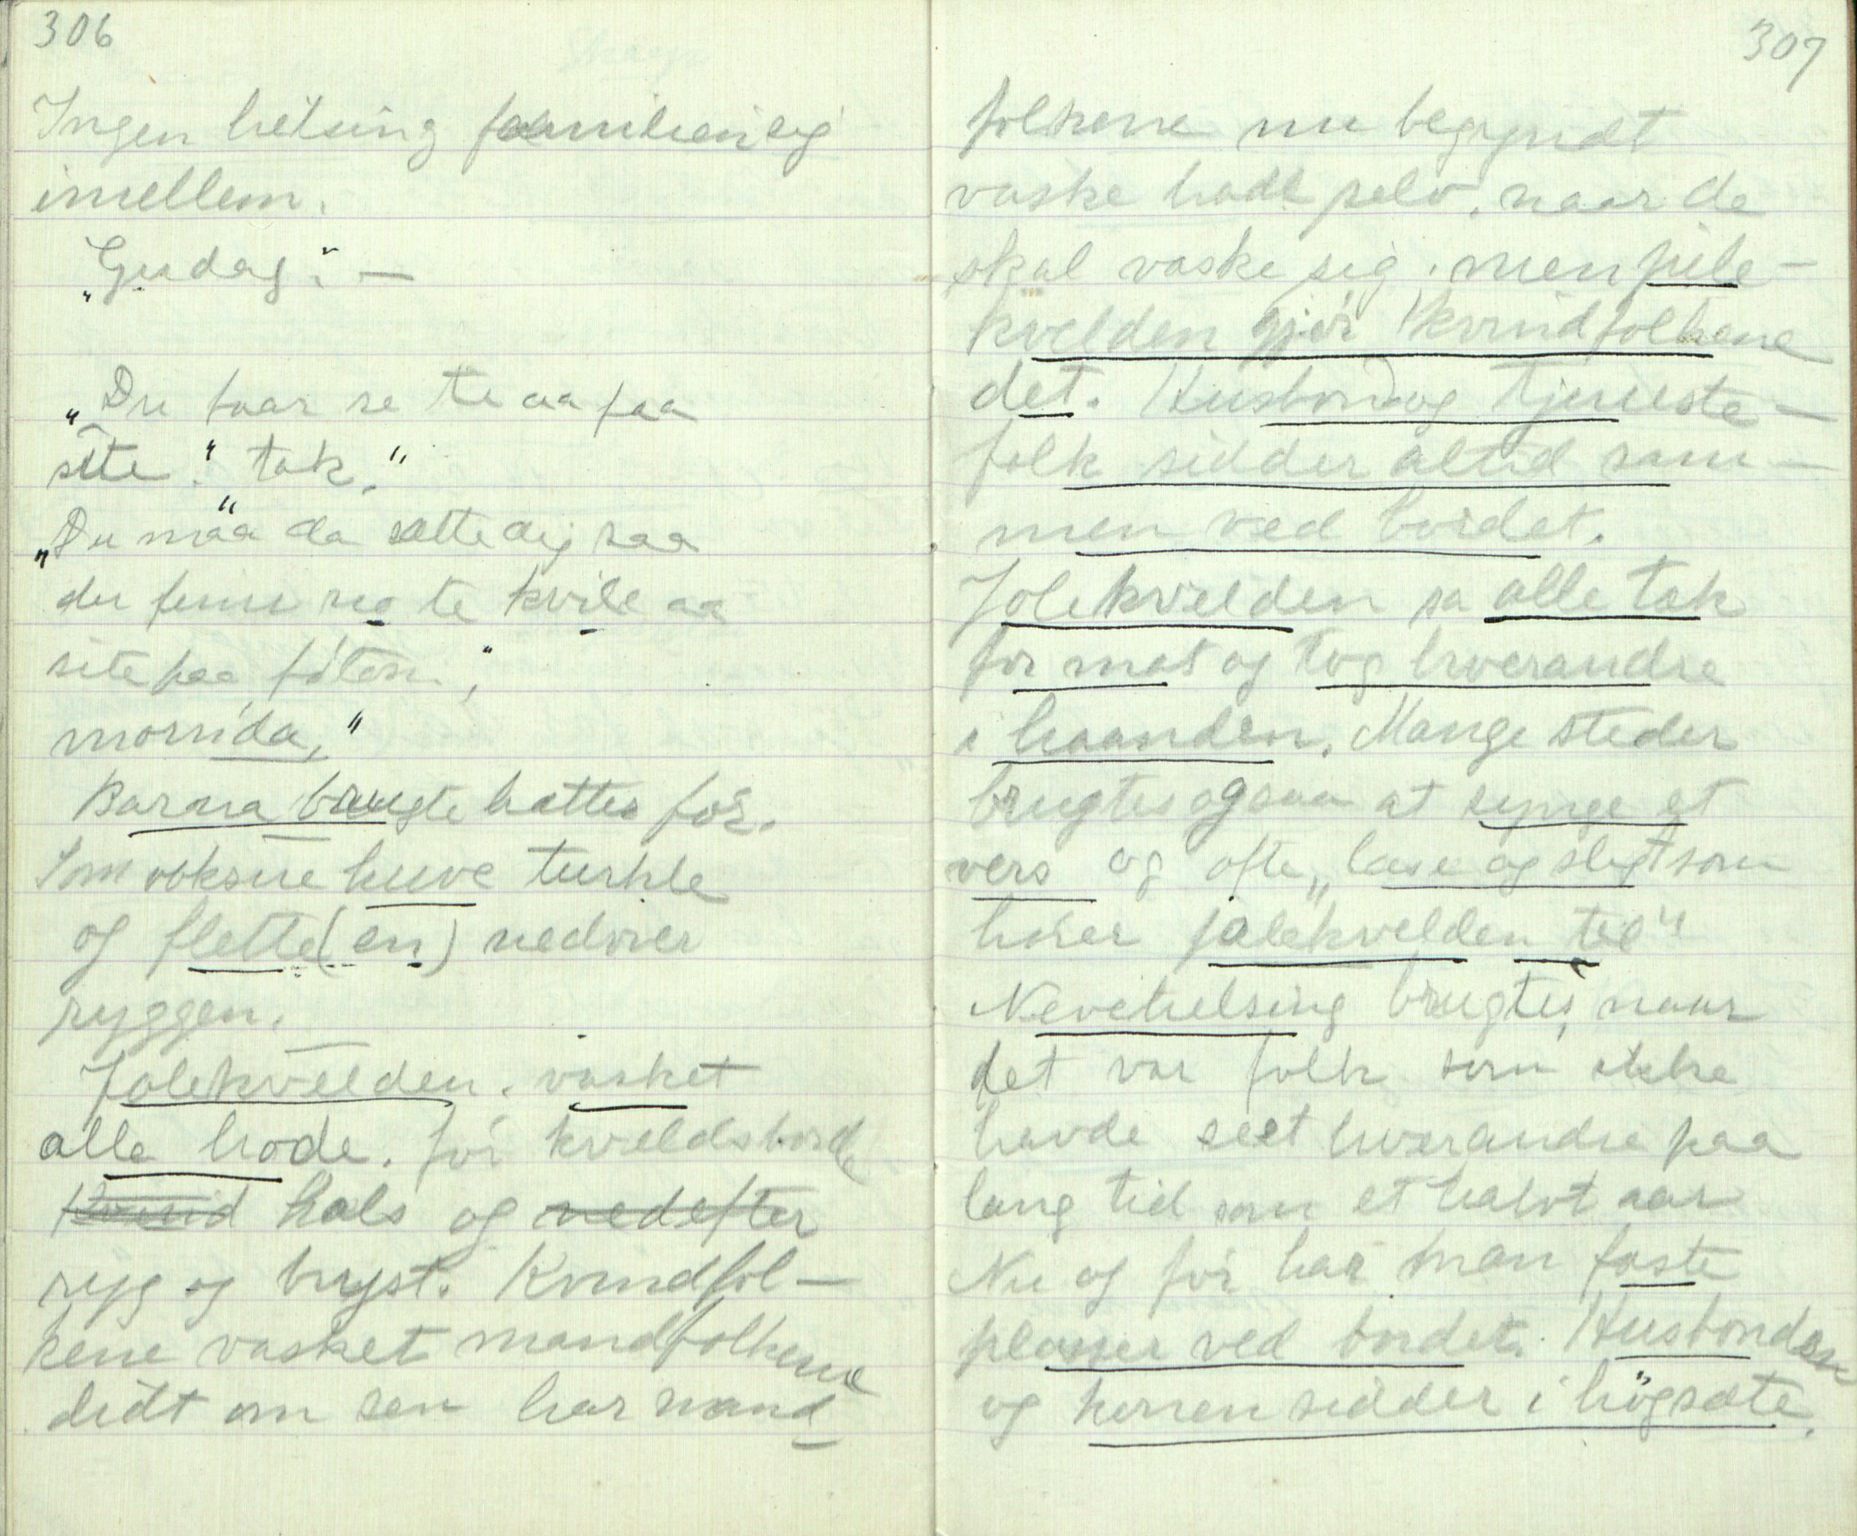 306
Ingen helsing familieneg
imellem.
"Gudag". —
"Du faar se te aa faa
site." "tak."
"Du maa da sætte dig saa
du finn reo te kvile aa
site paa föten",
morrida,"
Barna brugte hatter för.
Som voksne huve turkle
og flette(en) nedover
ryggen.
Jolekvelden. vasket
alle hode. för kveldsbord
Kvind hals og nedefter
ryg og bryst. Kvindfol-
kene vasket mandfolkene
didt om sen har mand
307
folkene nu begyndt
vaske hode selv, naar de
skal vaske sig. men jule-
kvelden gjör kvindfolkene
det. Husbond og tjeneste-
folk sidder altid sam-
men ved bordet.
Jolekvelden sa alle tak
for mat og tog hverandre
i haanden. Mange steder
brugtes ogsaa at synge et
vers og ofte "læse og sligt som
hörer jolekvelden til"
Nevehelsing brugtes, naar
det var folk som ikke
havde seet hverandre paa
lang tid som et halvt aar
Nu og för har man faste
plasser ved bordet. Husbonden
og konen sidder i högsæte.